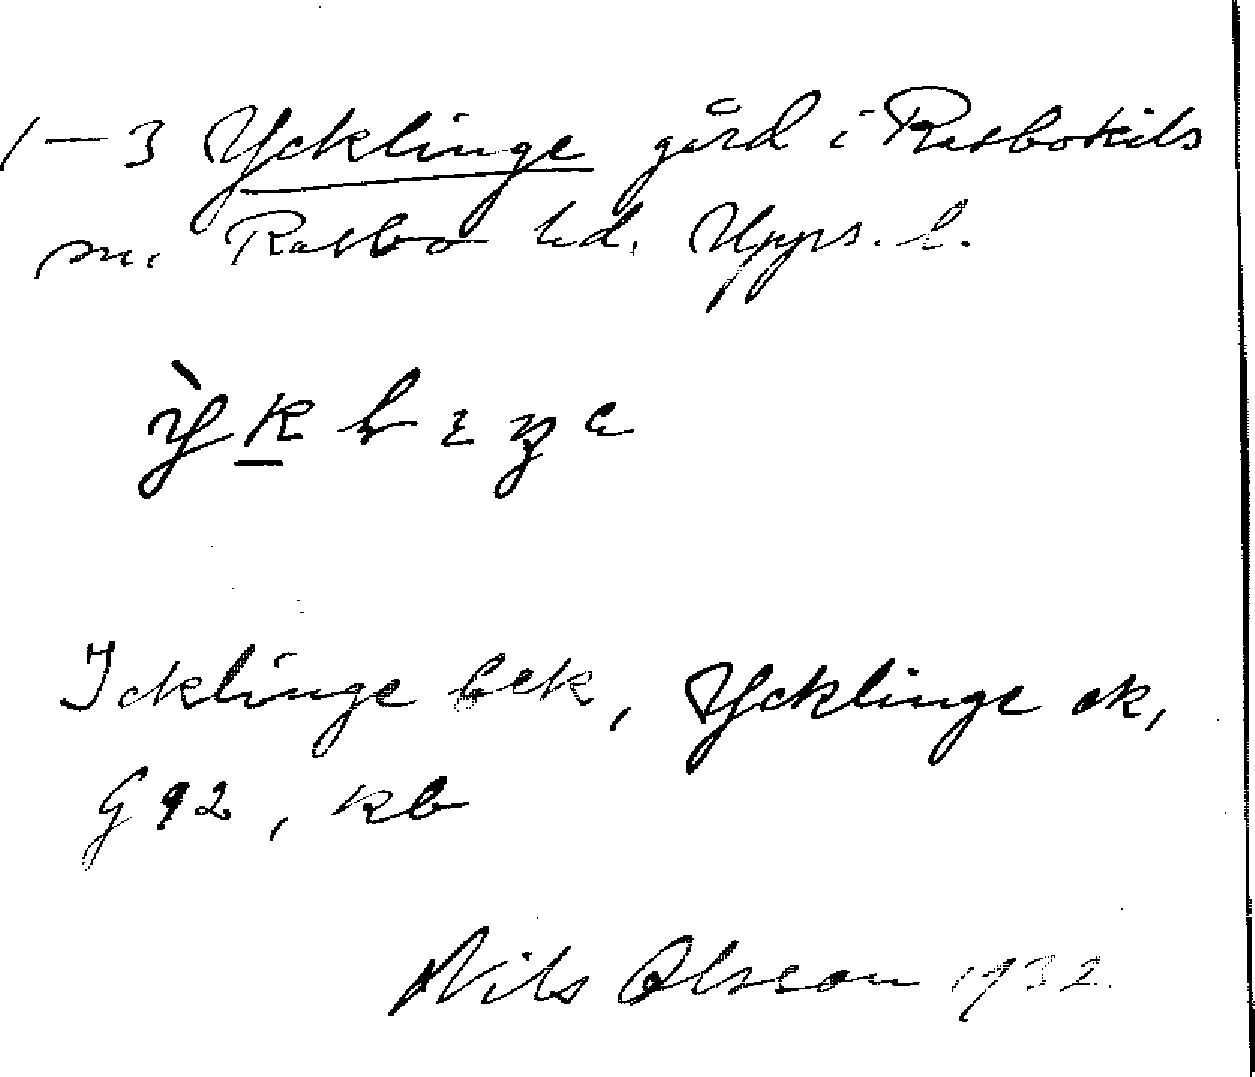 1–3 Ycklinge gård i Rasbokils
sn. Rasbo hd. Upps. l.
Icklinge bek, Ycklinge ek,
G 92, kb
Nils Olsson 1932.